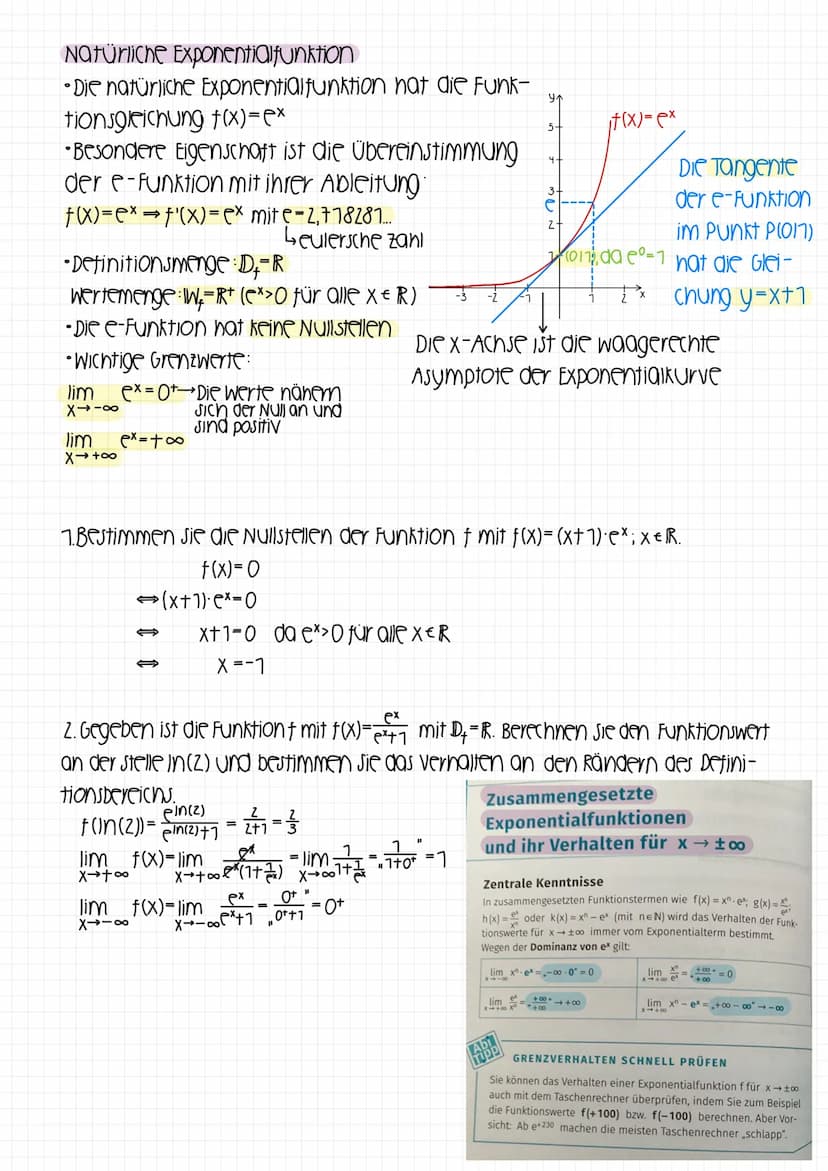 Natürliche Exponentialfunktion
• Die natürliche Exponentialfunktion hat die Funk-
tionsgleichung f(x)=eˣ
• Besondere Eigenschaft ist die Übereinstimmung
der e-Funktion mit ihrer Ableitung
f(x)=eˣ ⇒ f'(x)=eˣ mit e=2,718281...
↳ eulersche Zahl
• Definitionsmenge: D_f=ℝ
Wertemenge: W_f=ℝ⁺ (eˣ>0 für alle x∈ℝ)
• Die e-Funktion hat keine Nullstellen
• Wichtige Grenzwerte:
lim eˣ=0⁺ → Die Werte nähern
x→-∞ sich der Null an und
sind positiv
lim eˣ=+∞
x→+∞
y
f(x)=eˣ
5
4
3
e
2
1
P(0|1), da e⁰=1
-3 -2 -1 1 2 x
Die Tangente
der e-Funktion
im Punkt P(0|1)
hat die Glei-
chung y=x+1
Die x-Achse ist die waagerechte
Asymptote der Exponentialkurve
1. Bestimmen Sie die Nullstellen der Funktion f mit f(x)=(x+1)·eˣ; x∈ℝ.
f(x)=0
⇔ (x+1)·eˣ=0
⇔ x+1=0 da eˣ>0 für alle x∈ℝ
⇔ x=-1
2. Gegeben ist die Funktion f mit f(x)=eˣ/(eˣ+1) mit D_f=ℝ. Berechnen Sie den Funktionswert
an der Stelle ln(2) und bestimmen Sie das Verhalten an den Rändern des Defini-
tionsbereichs.
f(ln(2))= e^ln(2)/(e^ln(2)+1) = 2/(2+1) = 2/3
lim f(x)= lim eˣ/(eˣ(1+1/eˣ)) = lim 1/(1+1/eˣ) = „1/(1+0⁺)" =1
x→+∞ x→+∞ x→∞
lim f(x)= lim eˣ/(eˣ+1) = „0⁺/(0⁺+1)" =0⁺
x→-∞ x→-∞
Zusammengesetzte
Exponentialfunktionen
und ihr Verhalten für x → ±∞
Zentrale Kenntnisse
In zusammengesetzten Funktionstermen wie f(x) = xⁿ · eˣ; g(x) = xⁿ/eˣ;
h(x) = eˣ/xⁿ oder k(x) = xⁿ − eˣ (mit n∈ℕ) wird das Verhalten der Funk-
tionswerte für x → ±∞ immer vom Exponentialterm bestimmt.
Wegen der Dominanz von eˣ gilt:
lim xⁿ · eˣ = „−∞ · 0" = 0
x→−∞
lim xⁿ/eˣ = „+∞/+∞" = 0
x→+∞
lim eˣ/xⁿ = „+∞/+∞" → +∞
x→+∞
lim xⁿ − eˣ = „+∞ − ∞" → −∞
x→+∞
Abi
Tipp
GRENZVERHALTEN SCHNELL PRÜFEN
Sie können das Verhalten einer Exponentialfunktion f für x → ±∞
auch mit dem Taschenrechner überprüfen, indem Sie zum Beispiel
die Funktionswerte f(+100) bzw. f(−100) berechnen. Aber Vor-
sicht: Ab e⁺²³⁰ machen die meisten Taschenrechner „schlapp".